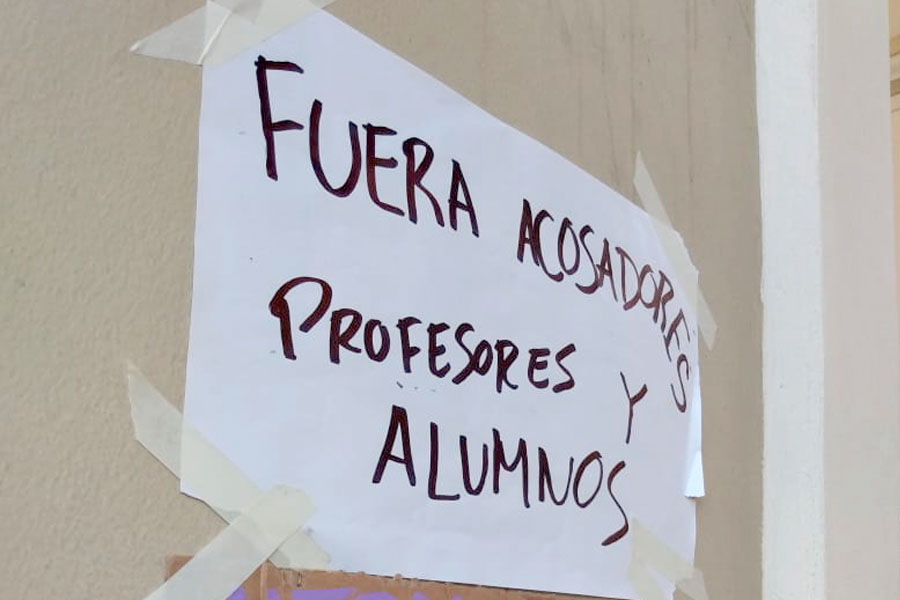 FUERA ACOSADORES
PROFESORES Y
ALUMNOS